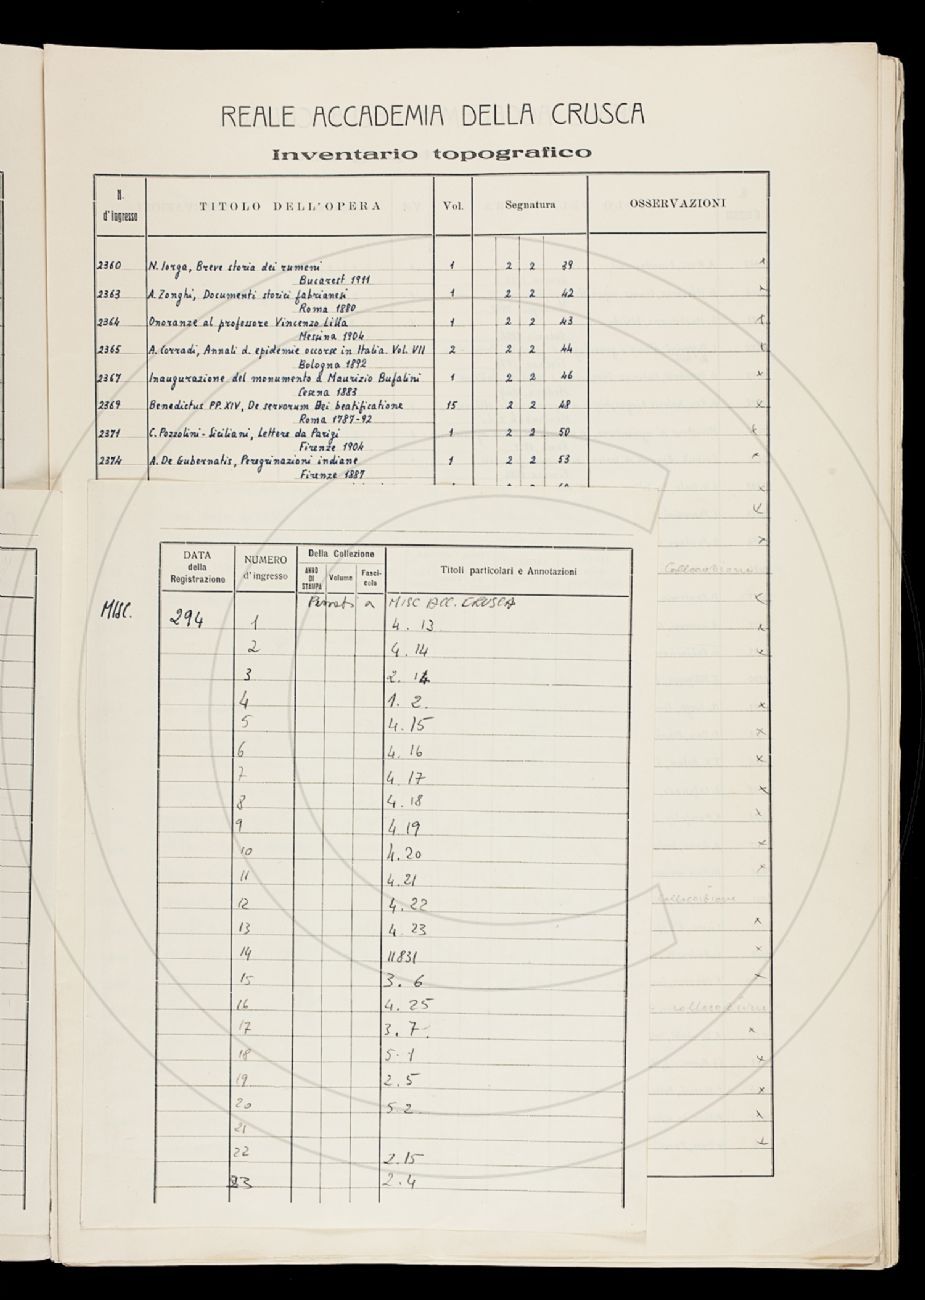 REALE ACCADEMIA DELLA CRUSCA
Inventario topografico
N. d'Ingresso TITOLO DELL'OPERA Vol. Segnatura OSSERVAZIONI
2360 N. Iorga, Breve storia dei rumeni 1 2 2 39
Bucarest 1911
2363 A. Zonghi, Documenti storici fabrianesi 1 2 2 42
Roma 1880
2364 Onoranze al professore Vincenzo Lilla 1 2 2 43
Messina 1904
2365 A. Corradi, Annali d. epidemie occorse in Italia. Vol. VII 2 2 2 44
Bologna 1892
2367 Inaugurazione del monumento a Maurizio Bufalini 1 2 2 46
Cesena 1883
2369 Benedictus PP. XIV, De servorum Dei beatificatione 15 2 2 48
Roma 1787-92
2371 C. Pozzolini-Siciliani, Lettere da Parigi 1 2 2 50
Firenze 1904
2374 A. De Gubernatis, Peregrinazioni indiane 1 2 2 53
Firenze 1887
DATA della Registrazione NUMERO d'ingresso Della Collezione ANNO DI STAMPA Volume Fascicolo Titoli particolari e Annotazioni
a MISC ACC. CRUSCA
MISC. 294 1 4. 13
2 4. 14
3 2. 14
4 1. 2.
5 4. 15
6 4. 16
7 4. 17
8 4. 18
9 4. 19
10 4. 20
11 4. 21
12 4. 22
13 4. 23
14 11831
15 3. 6
16 4. 25
17 3. 7.
18 5. 1
19 2. 5
20 5 2
21
22 2. 15
23 2. 4